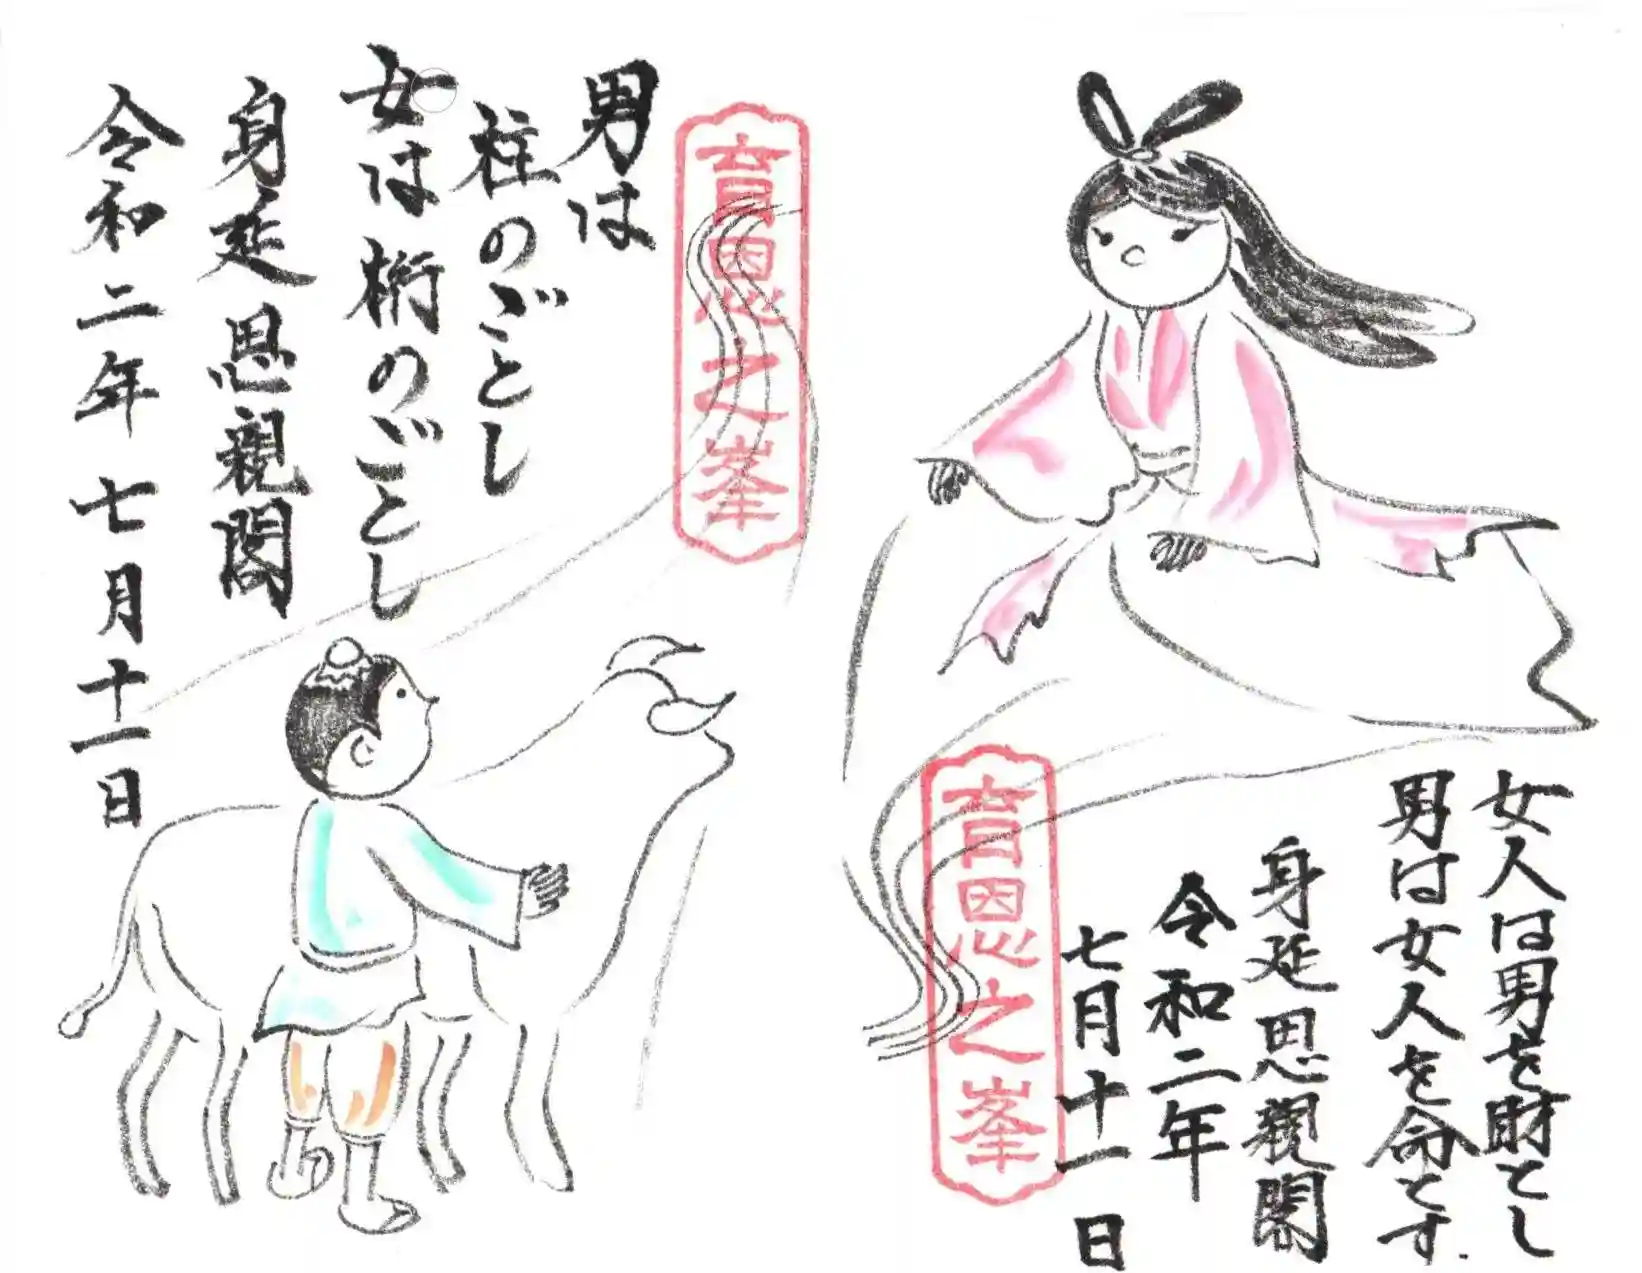 女人は男を財とし
男は女人を命とす.
身延思親閣
令和二年
七月十一日
育恩之峯
育恩之峯
男は
柱のごとし
女は桁のごとし
身延思親閣
令和二年七月十一日